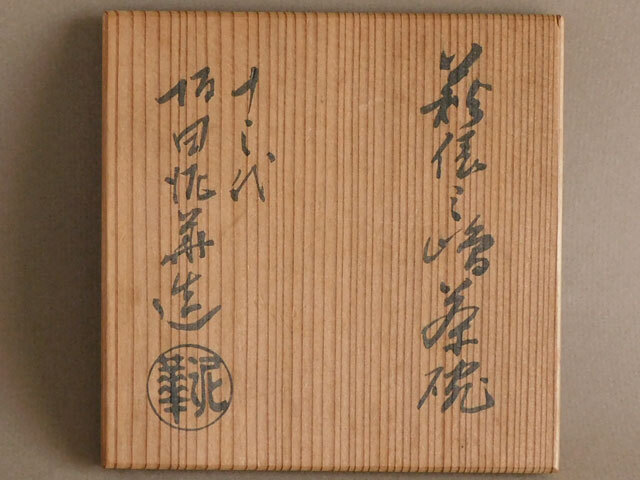 萩 之 茶碗
十三代
坂田泥華造
泥華